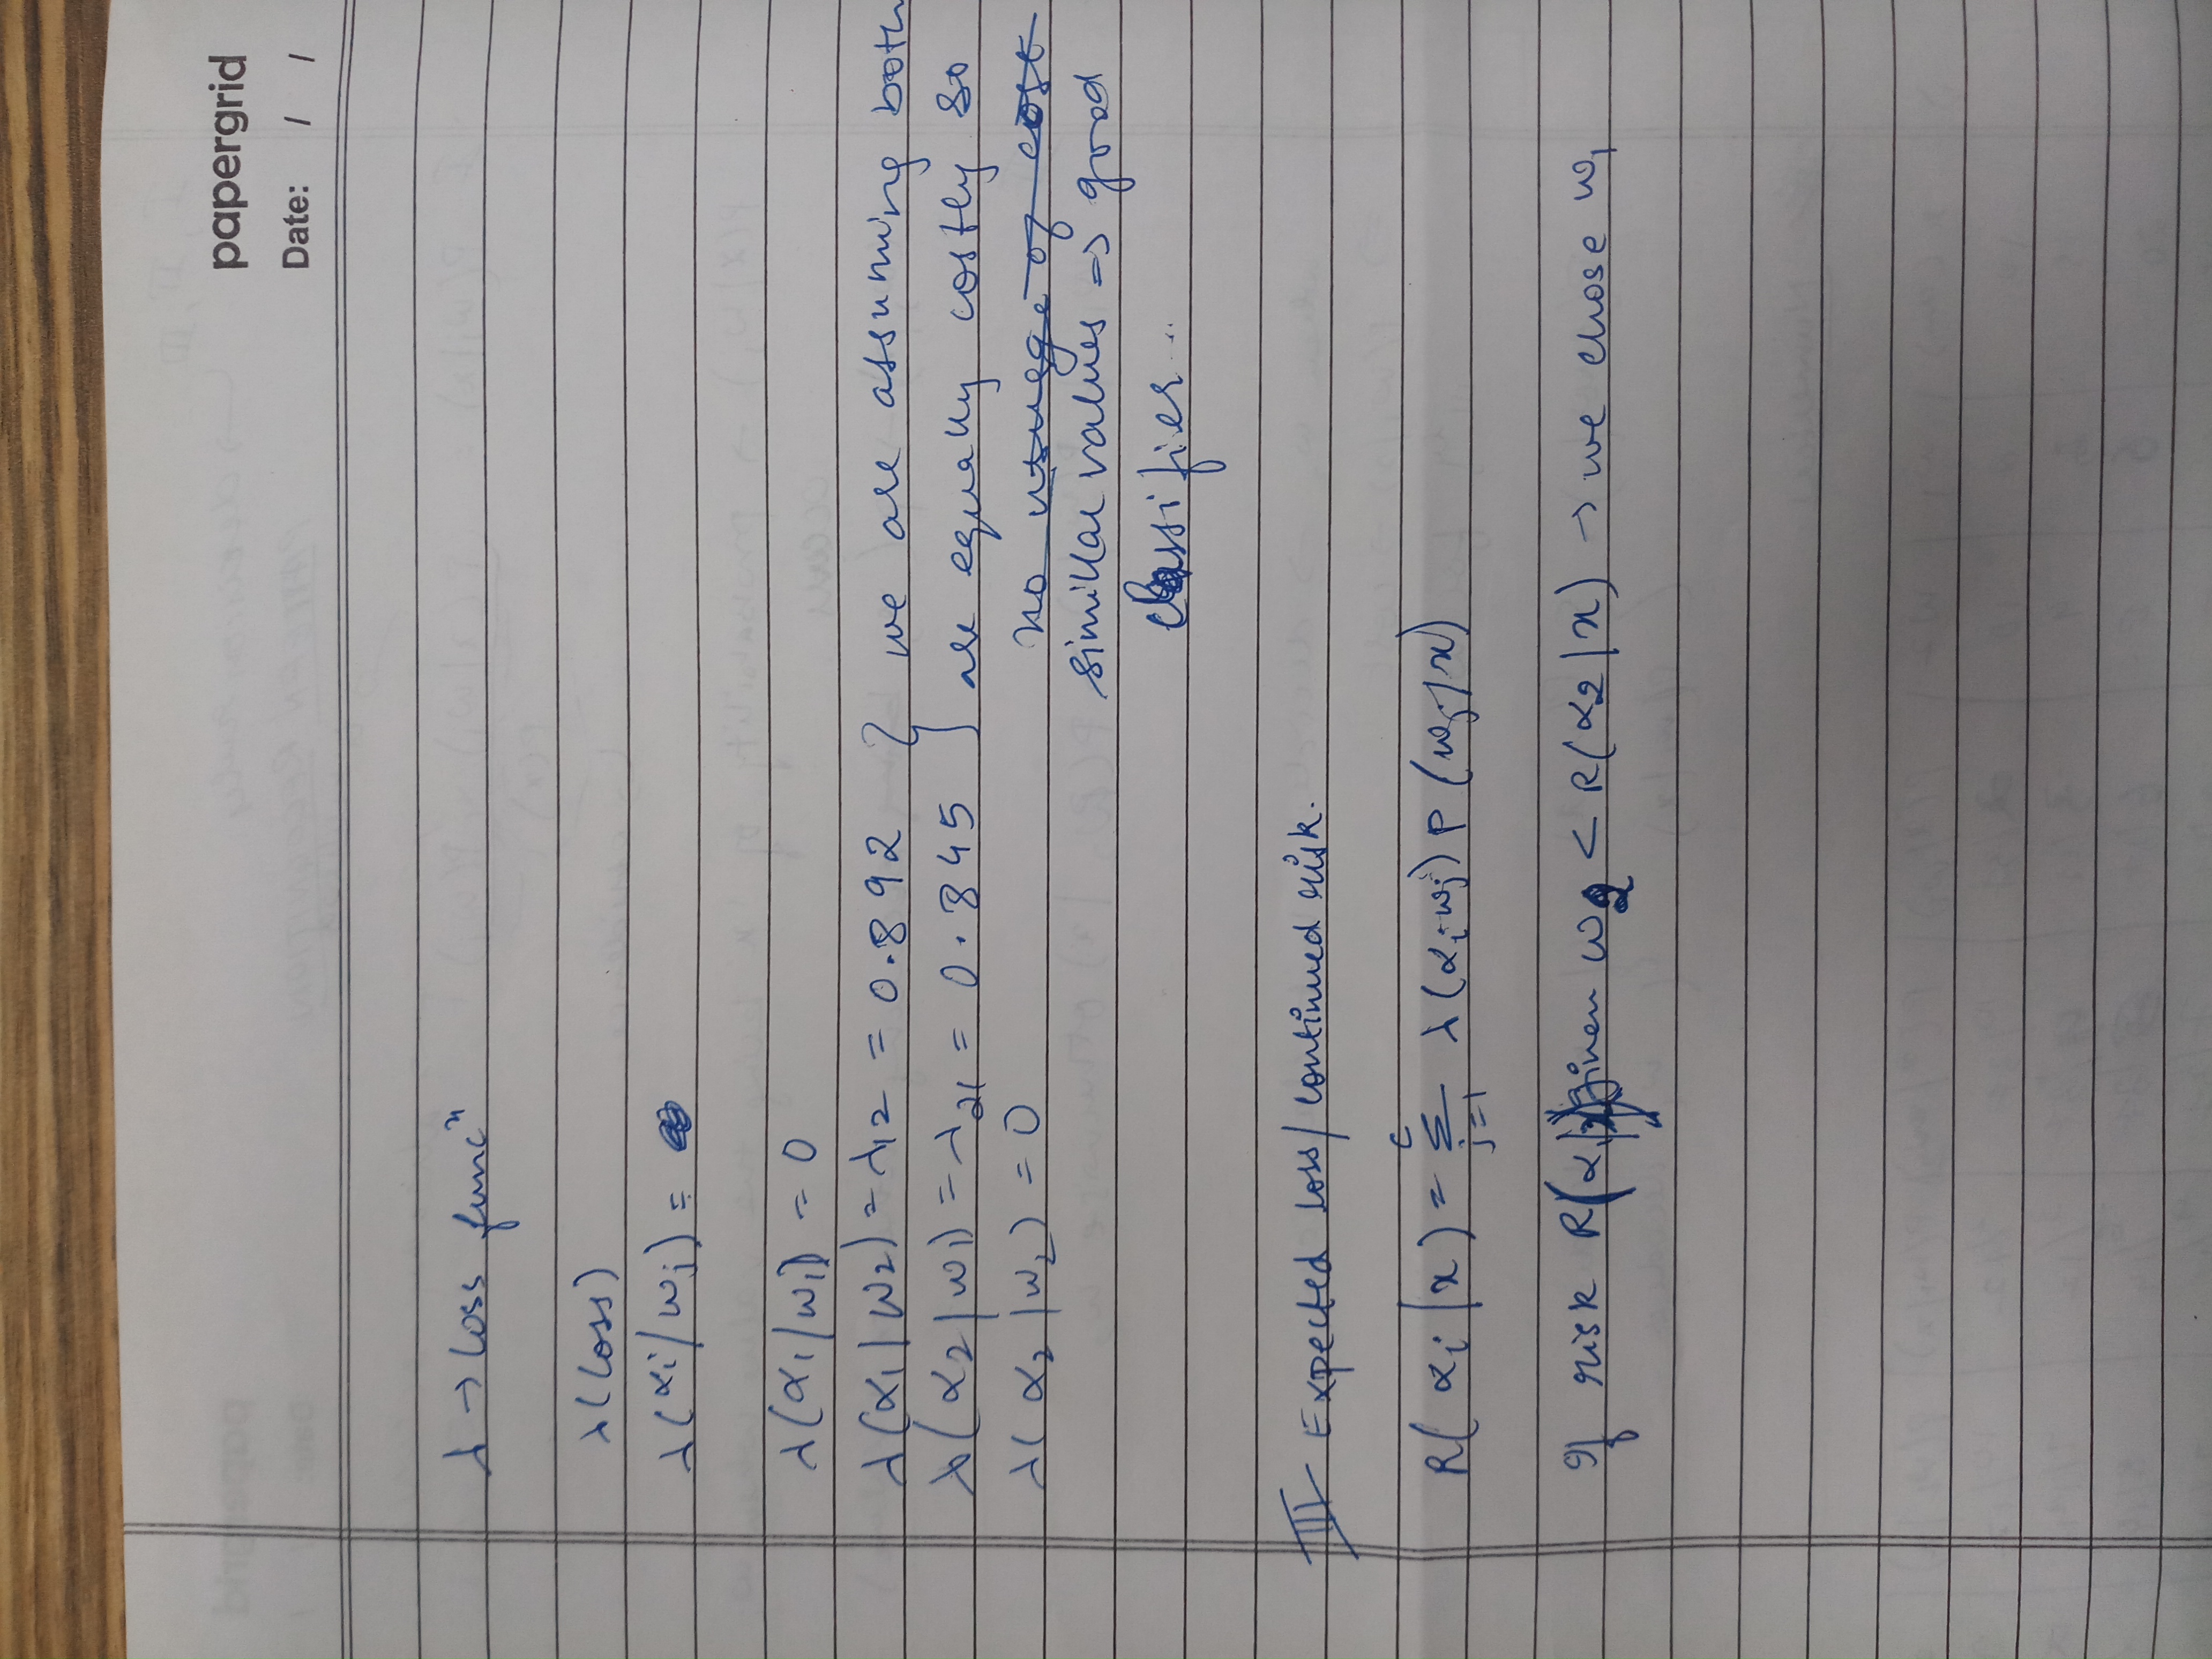 papergrid
Date: / /
λ → loss funcⁿ
λ(loss)
λ(αi/wj) =
λ(α₁/w₁) = 0
λ(α₁|w₂) = λ₁₂ = 0.892 } we are assuming both
λ(α₂|w₁) = λ₂₁ = 0.845 } are equally costly so
λ(α₂|w₂) = 0 no usuege of cost
similar values => good
classifier..
III Expected loss/continued risk.
R(αi|x) = Σ c j=1 λ(αi wj) P(wj/x)
If risk R(α₁ given w₂ < R(α₂|x) → we chose w₁